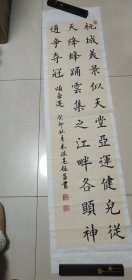 杭城美景似天堂亞運健兒從
天降蜂踴雲集之江畔各顯神
通争夺冠 頌亞運 癸卯秋月 書